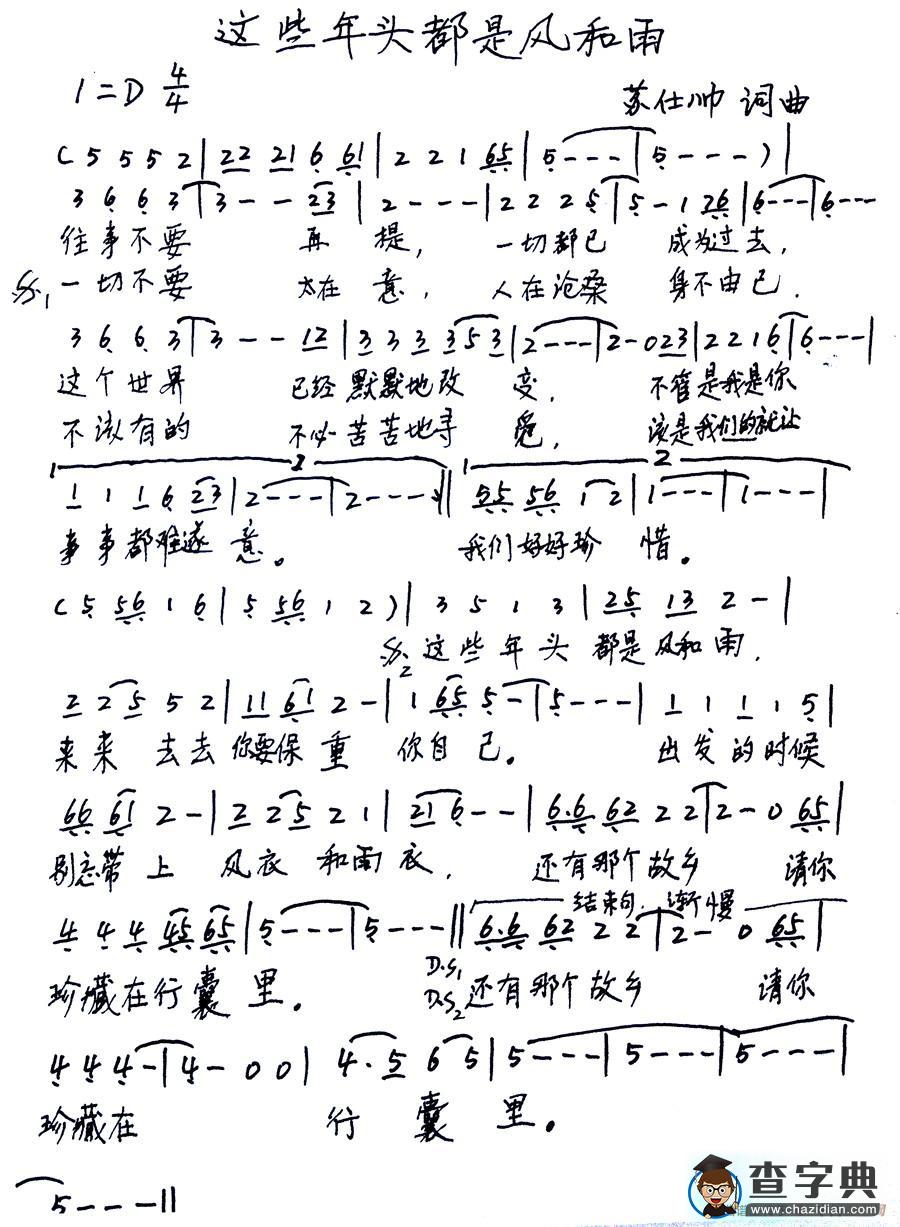 这些年头都是风和雨
1=D 4/4
苏仕帅 词曲
( 5 5 5 2 | 22 21 6 61 | 2 2 1 65 | 5 - - - | 5 - - - ) |
3 6 6 3 | 3 - - 23 | 2 - - - | 2 2 2 5 | 5 - 1 26 | 6 - - - | 6 - - -
往事不要 再 提, 一切都已 成为过去,
𝄋1 一切不要 太在 意, 人在沧桑 身不由已.
3 6 6 3 | 3 - - 12 | 3 3 3 3 5 3 | 2 - - - | 2 - 0 23 | 2 2 1 6 | 6 - - - |
这个世界 已经默默地改 变, 不管是我是你
不该有的 不必苦苦地寻 觅, 该是我们的就让
1 2 1 2
1 1 1 6 23 | 2 - - - | 2 - - - :|| 55 56 1 2 | 1 - - - | 1 - - - |
事事都难遂 意。 我们好好珍 惜。
( 5 56 1 6 | 5 56 1 2 ) | 3 5 1 3 | 25 13 2 - |
𝄋2 这些年头 都是风和雨,
2 2 5 5 2 | 11 61 2 - | 1 65 5 - | 5 - - - | 1 1 1 1 5 |
来来 去去 你要保 重 你自 己。 出发的时候
66 61 2 - | 2 2 5 2 1 | 21 6 - - | 6.6 62 2 2 | 2 - 0 65 |
别忘带 上 风衣 和雨 衣, 还有那个故乡 请你
结束句.渐慢
4 4 4 45 65 | 5 - - - | 5 - - - || 6.6 62 2 2 | 2 - 0 65 |
珍藏在行囊 里。 D.S1 D.S2 还有那个故乡 请你
4 4 4 - | 4 - 0 0 | 4. 5 6 5 | 5 - - - | 5 - - - | 5 - - - |
珍藏在 行 囊 里。
5 - - - ||
查字典
www.chazidian.com